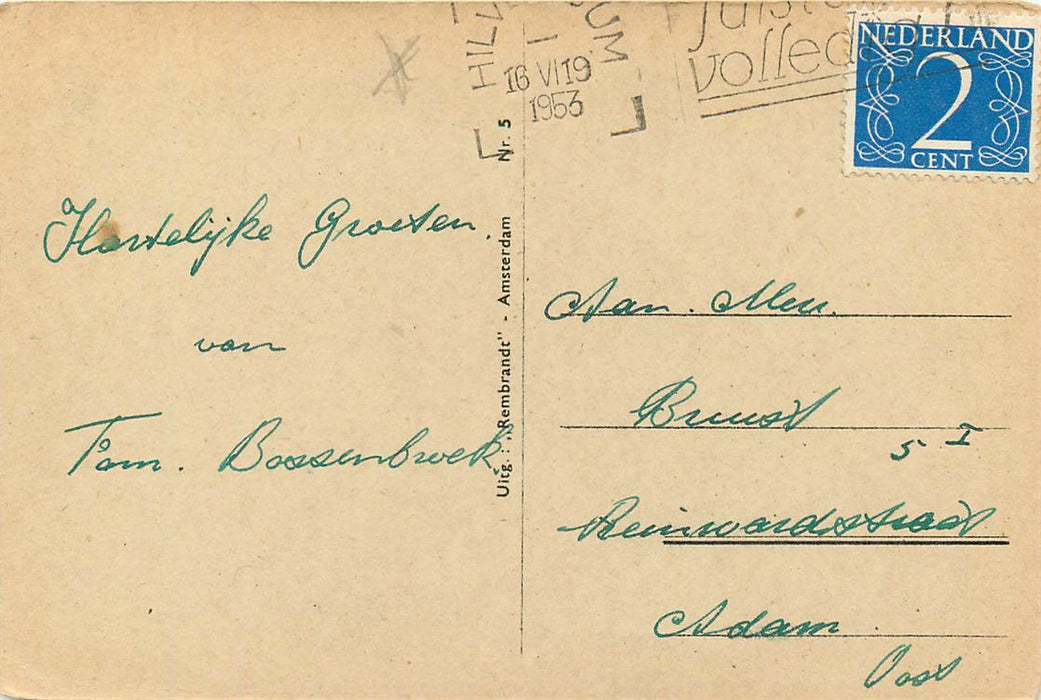 HILVERSUM
16 VI 19
1953
volledig
NEDERLAND
2
CENT
Hartelijke Groeten.
van
Fam. Bossenbroek
Uitg.: „Rembrandt" - Amsterdam Nr. 5
Aan. Mevr.
Bruust
5 I
Reinwardstraat
Adam.
Oost